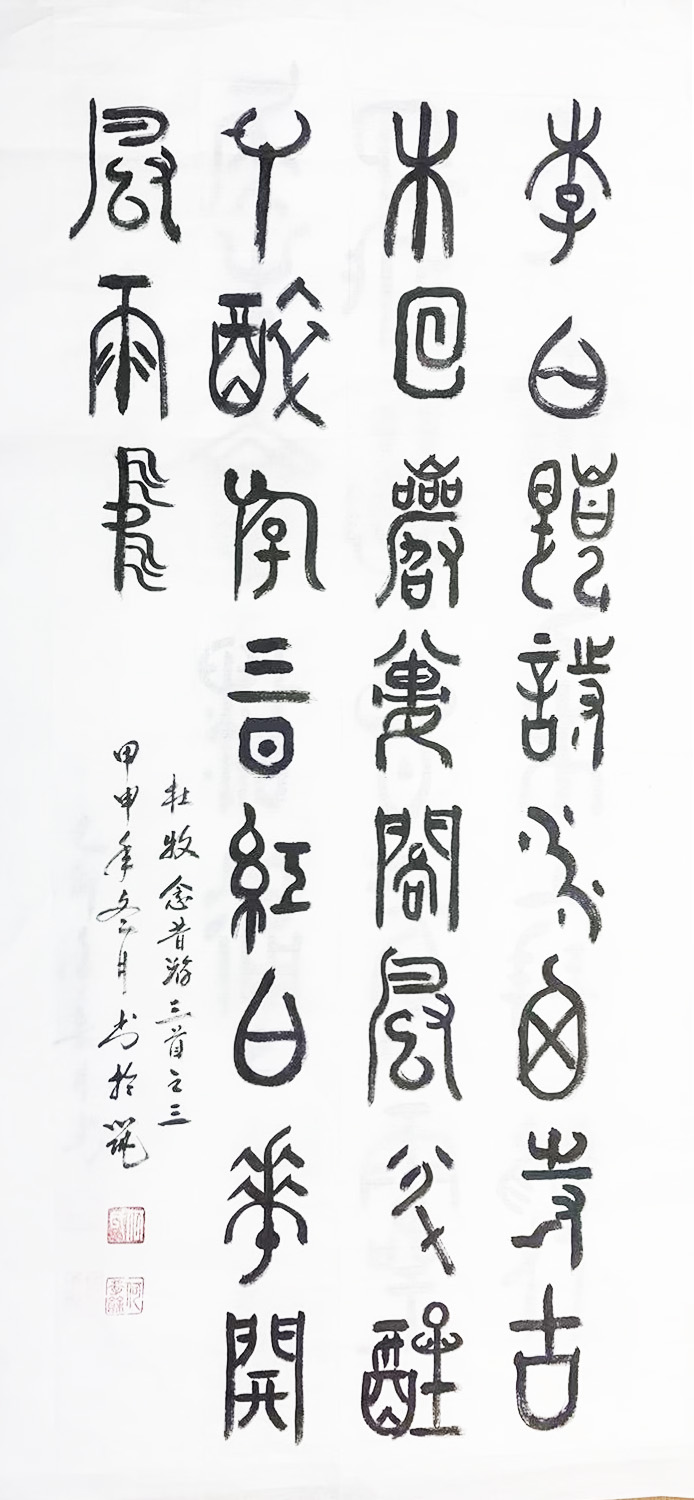 李白題詩水西寺古
木回巖樓閣風半醒
半醉游三日紅白花開
風雨中
杜牧念昔游三首之三
甲申年冬月书於